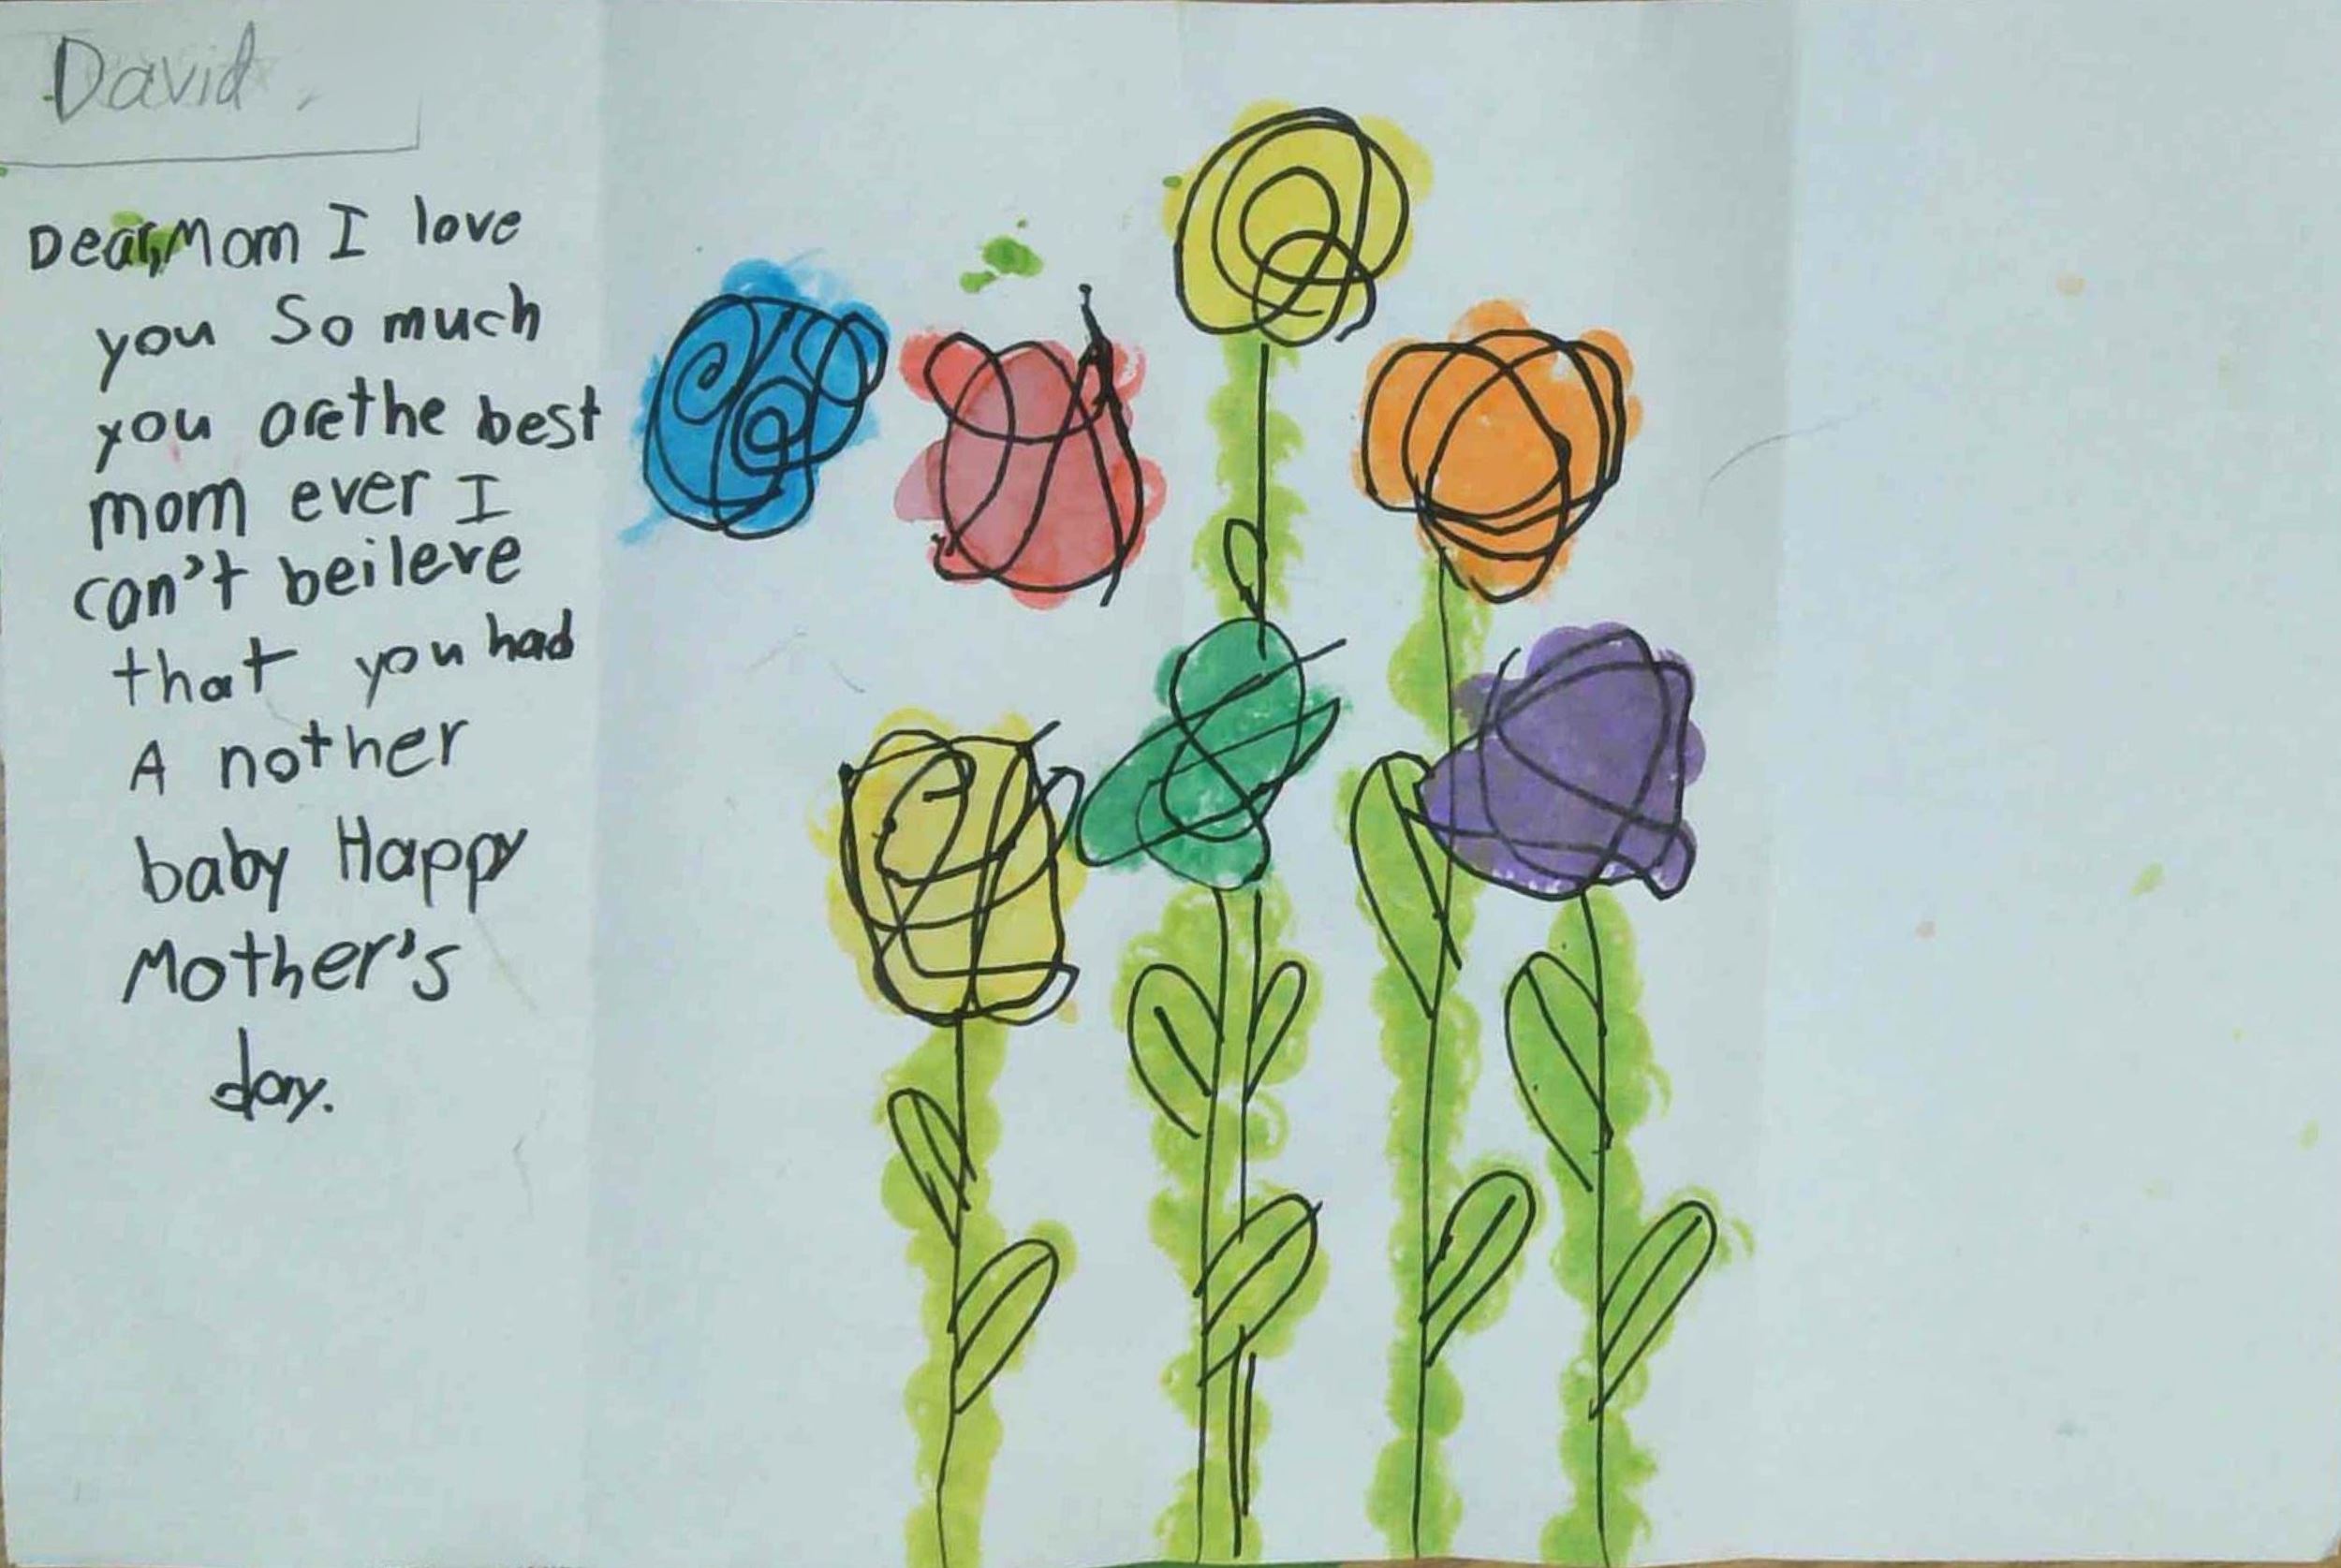 David
Dear, Mom I love
you so much
you are the best
mom ever I
can't beileve
that you had
A nother
baby Happy
Mother's
day.